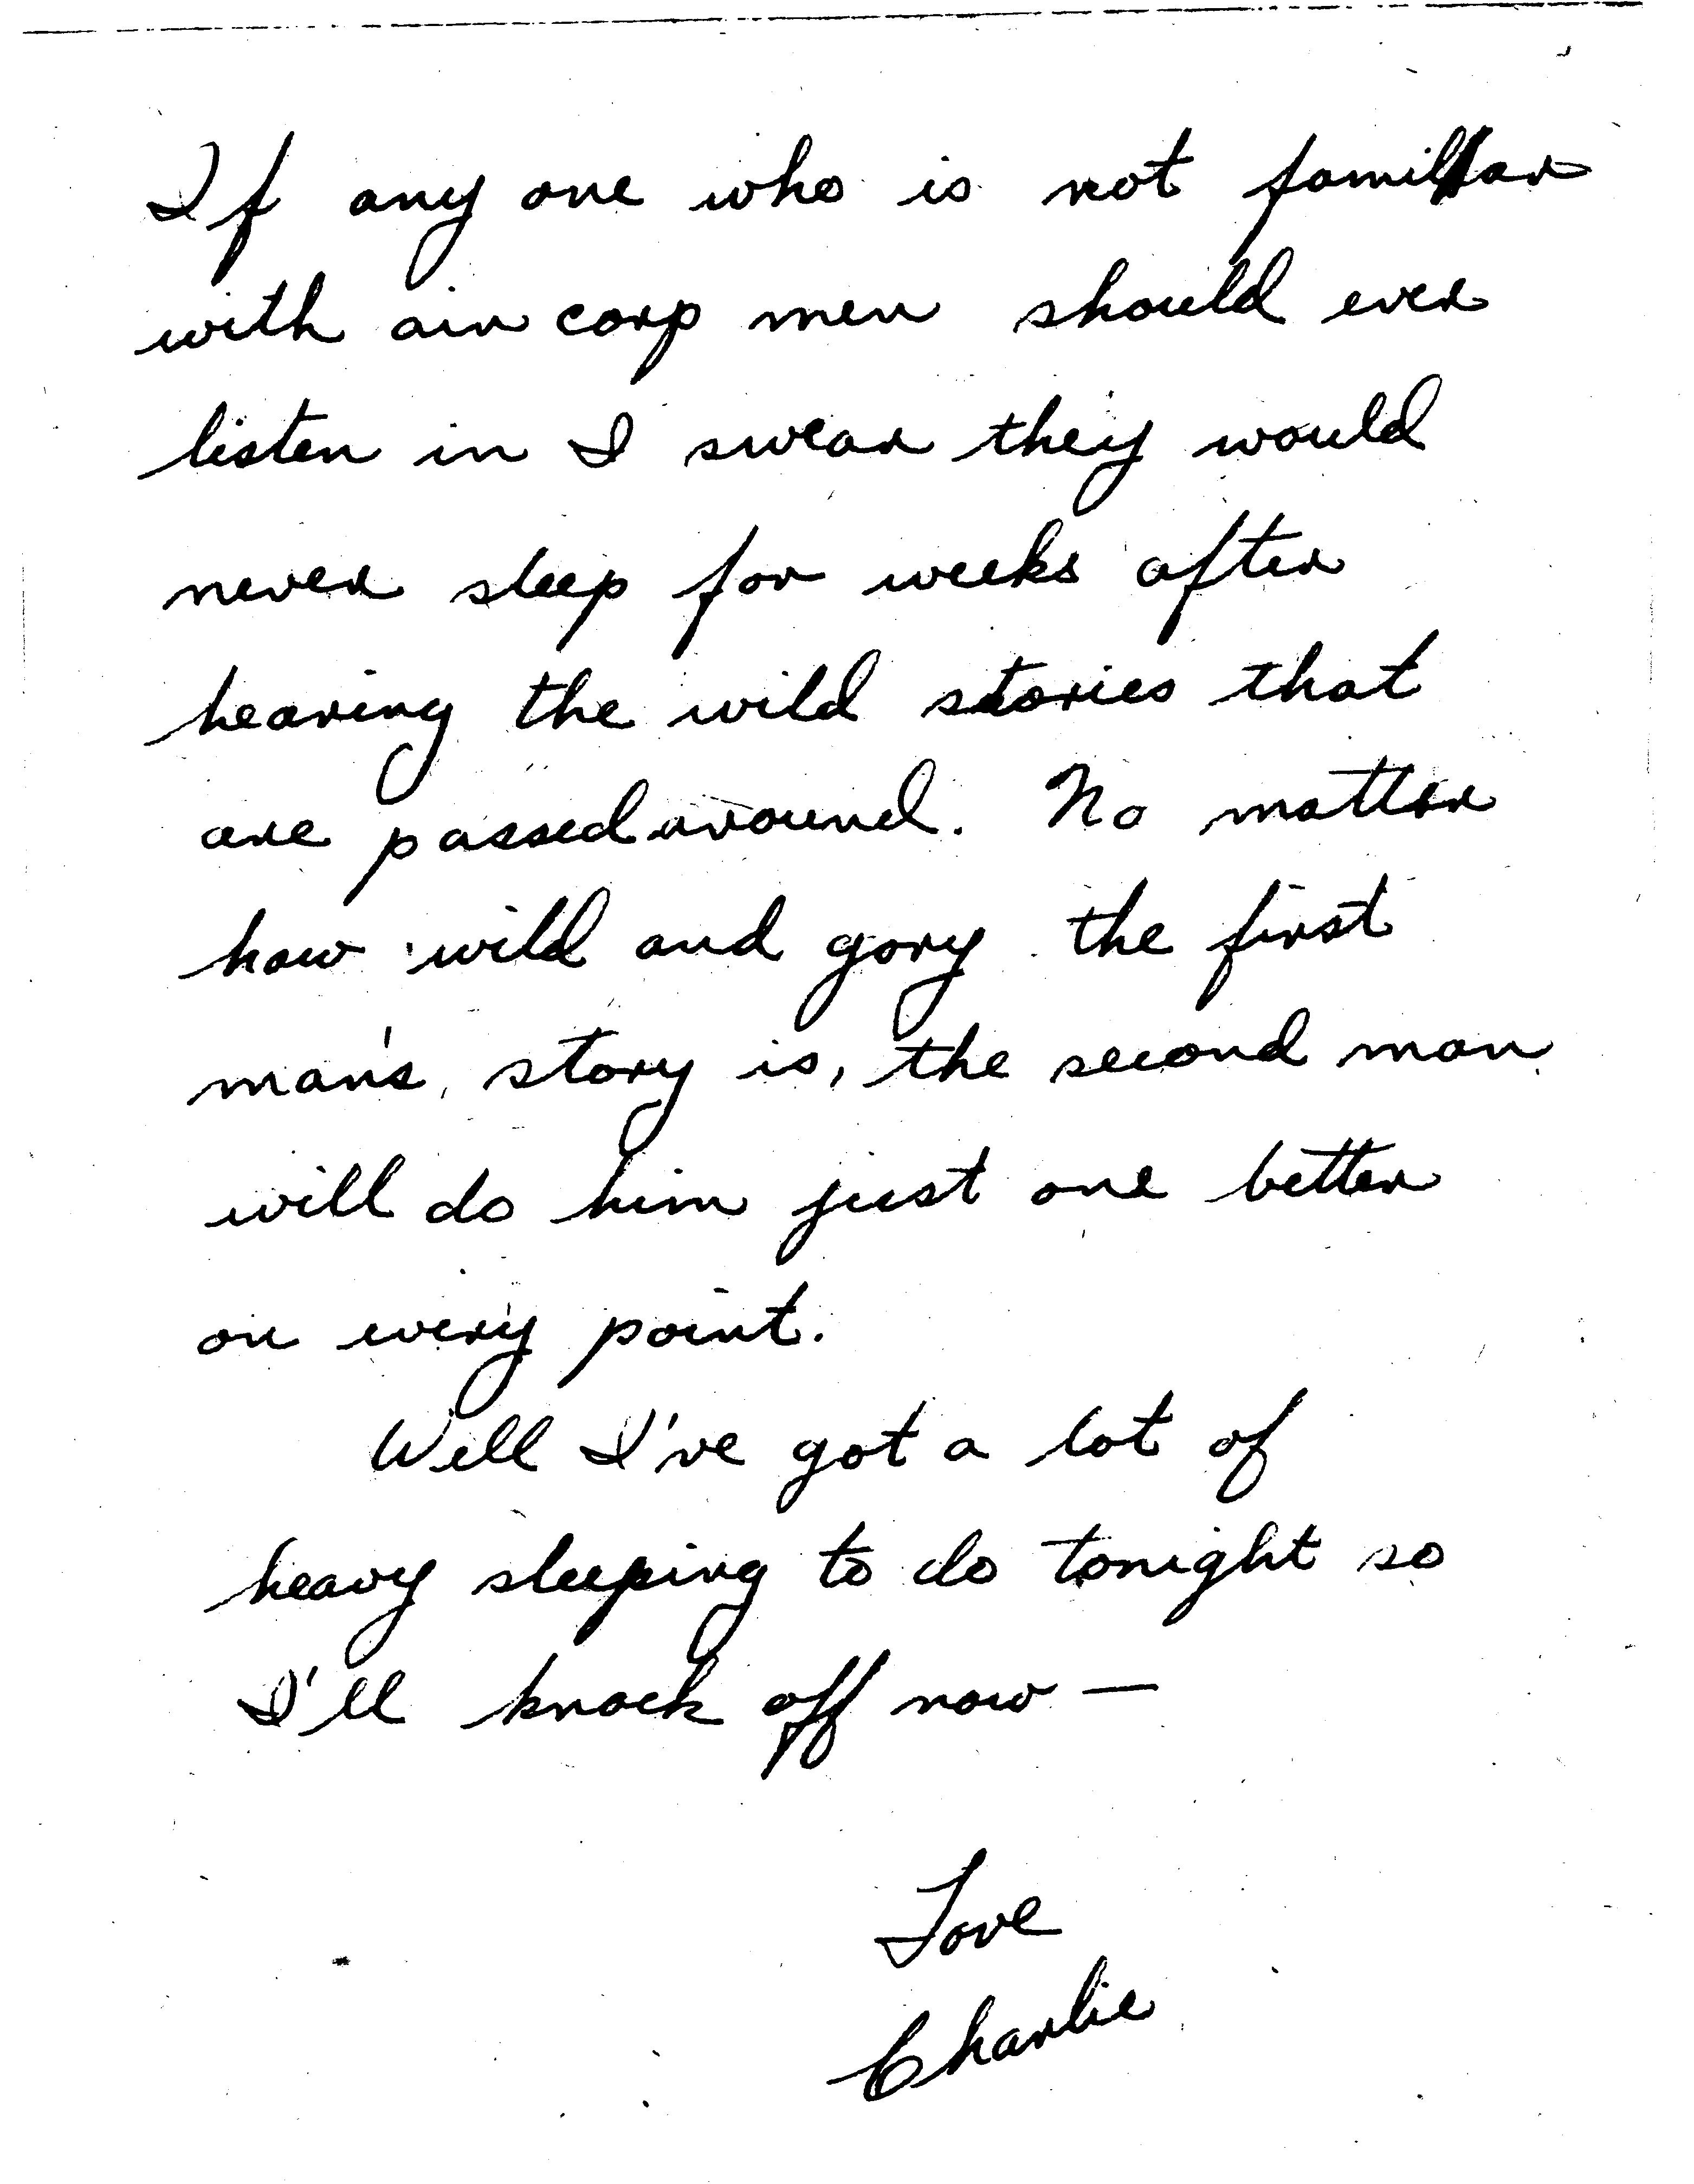 If any one who is not familiar
with air corp men should ever
listen in I swear they would
never sleep for weeks after
hearing the wild stories that
are passed around. No matter
how wild and gory the first
man's story is, the second man
will do him just one better
on every point.
Well I've got a lot of
heavy sleeping to do tonight so
I'll knock off now —
Love
Charlie